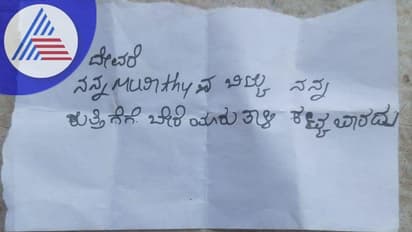 ದೇವರೆ
ನನ್ನ Murithyನ ಬಿಟ್ಟು ನನ್ನ
ಕುತ್ತಿಗೆಗೆ ಬೇರೆ ಯಾರು ತಾಳಿ ಕಟ್ಟಬಾರದು